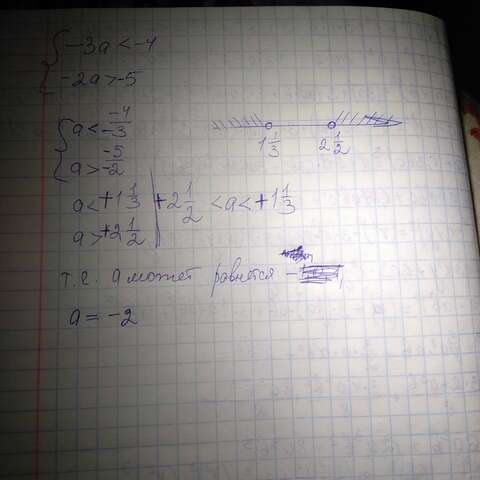 -3a < -4
-2a > -5
a < -4/-3
a > -5/-2
1 1/3 2 1/2
a < +1 1/3 +2 1/2 < a < +1 1/3
a > +2 1/2
т.е. а может равнятся -
a = -2